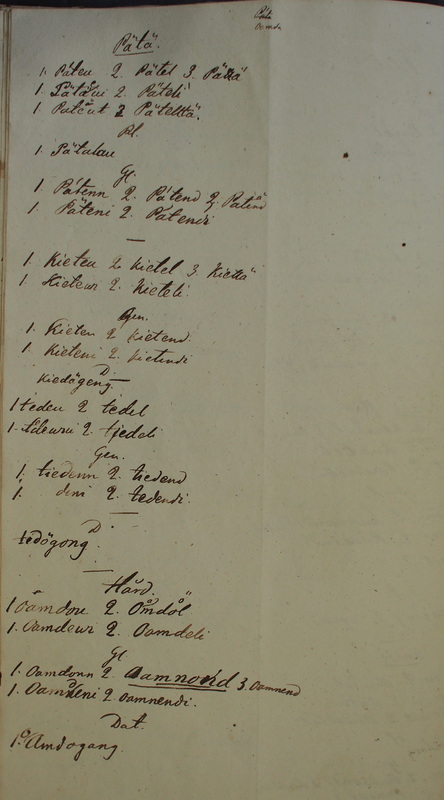 Pätä
Oamda
Pätä.
1. Päteu 2. Pätel 3. Pätä
1. Pätäui 2. Päteli
1 Pateut 2 Päteltä.
Pl.
1. Pätulau
Gl.
1. Pätenn 2. Pätend 3. Patend
1. Päteni 2. Pätendi
1. Kieteu 2. Kietel 3. Kietä
1. Kieteui 2. Kieteli.
Gen.
1. Kieten 2 Kietend.
1. Kieteni 2. Kietendi
D.
Kiedögeng
1 tedeu 2 tedel
1. tideuui 2. tjedeli
Gen.
1. tiedenn 2. tiedend
1. deni 2. tedendi.
D.
tedögong.
Hård.
1 Oamdou 2. Omdöl
1. Oamdeui 2. Oamdeli
Gl
1. Oamdonn 2. Oamnond 3. Oamnend
1. Oamdeni 2. Oamnendi.
Dat.
1. Amdogang.